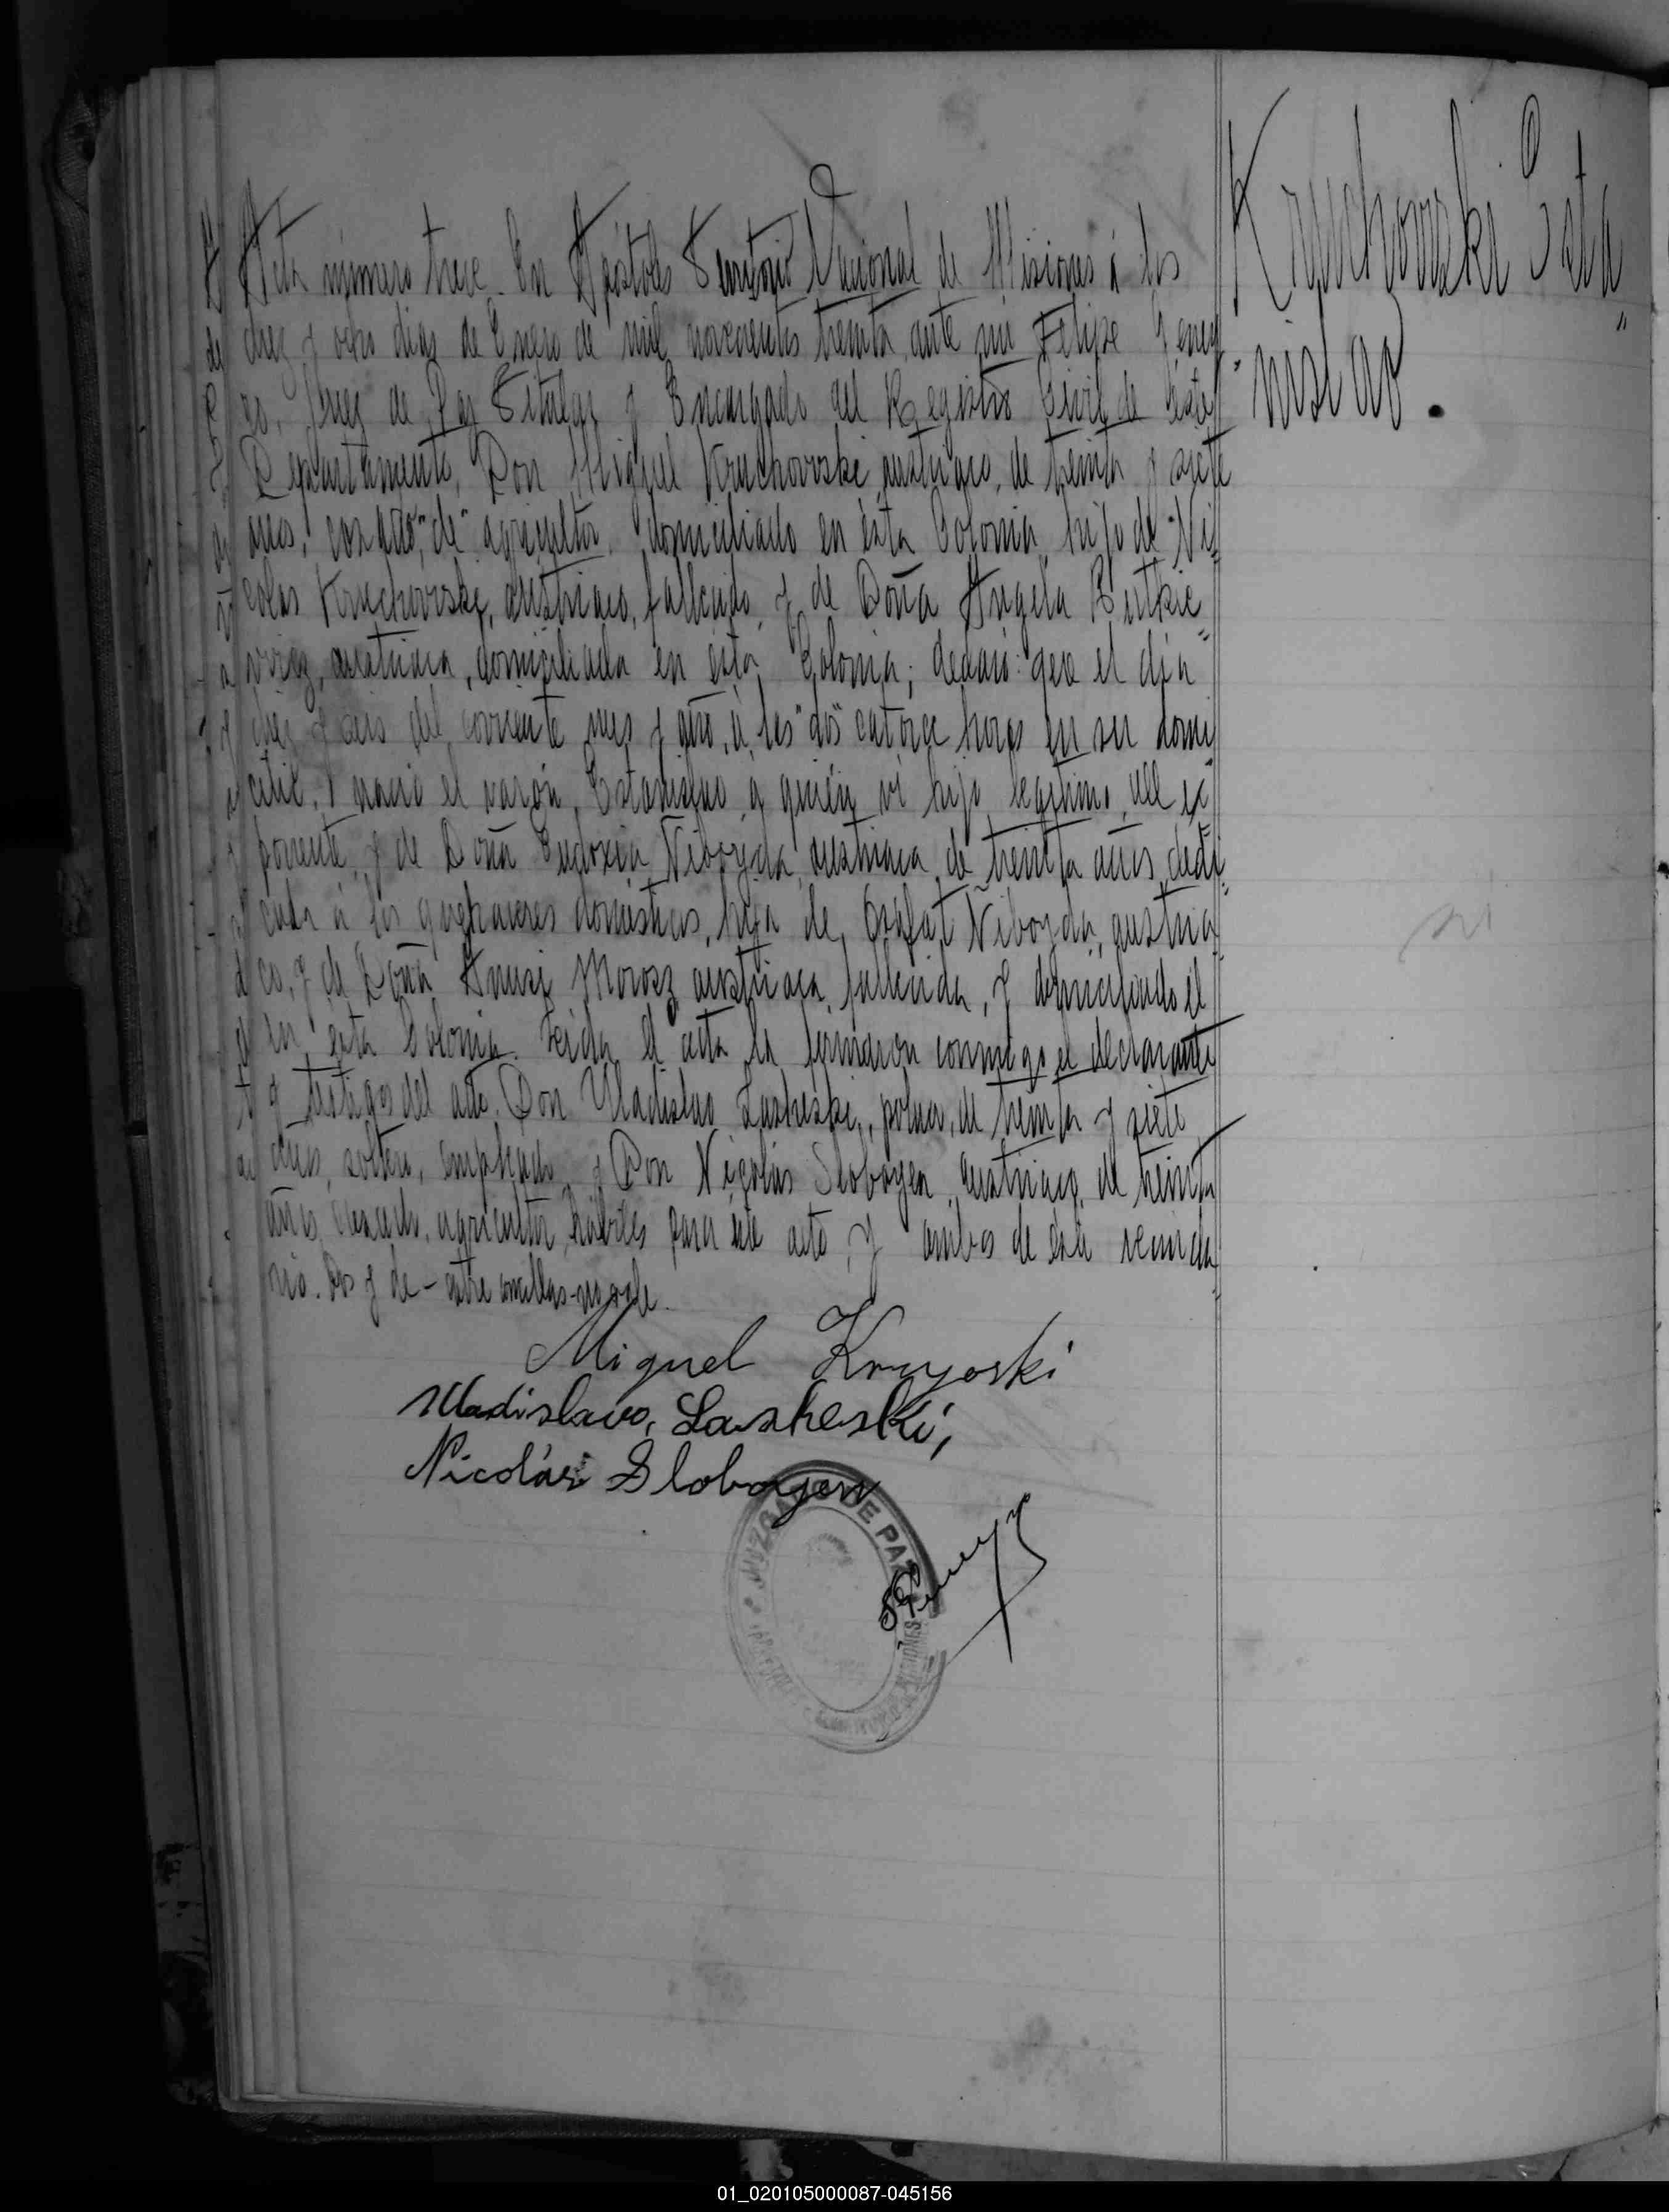 Kruchowski Esta„
„nislao.
Acta número trece. En Apóstoles Territorio Nacional de Misiones á los
diez y ocho dias de Enero de mil novecientos treinta, ante mi Felipe
Juez de Paz Titular y Encargado del Registro Civil de éste
Departamento, Don Miguel Kruchovski, austriaco, de treinta y siete
años, casado, "de" agricultor, domiciliado en ésta Colonia, hijo de Ni„
colás Kruchovski, austriaco, fallecido, y de Doña Angela
austriaca, domiciliada en ésta Colonia; declaró: que el día
diez y seis del corriente mes y año, á las "dos" catorce horas en su domi
cilio, nació el varón, Estanislao, á quién ví hijo legítimo del ex
ponente, y de Doña Eudoxia Niboyda, austriaca, de treinta años, dedi„
cada á los quehaceres domésticos, hija de Niboyda, austria„
co, y de Doña Morosz, austriaca, fallecida, y domiciliado él
en ésta Colonia. Leida el acta la firmaron conmigo el declarante
y testigos del acto. Don Uladislao Lasheski, polaco, de treinta y siete
años, soltero, empleado, y Don Nicolás Slobayen, austriaco, de treinta
años, casado, agricultor, hábiles para este acto, y ambos de este vecinda
rio. Dos y de - entre comillas - no vale.
Miguel Kruyoski
Uladislavo, Lasheski,
Nicolás Slobayen
JUZGADO DE PAZ
MISIONES
01_020105000087-045156